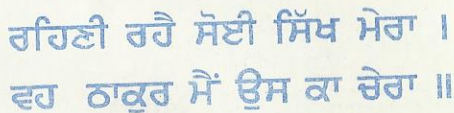 ਰਹਿਣੀ ਰਹੈ ਸੋਈ ਸਿੱਖ ਮੇਰਾ ।
ਵਹ ਠਾਕੁਰ ਮੈਂ ਉਸ ਕਾ ਚੇਰਾ ॥